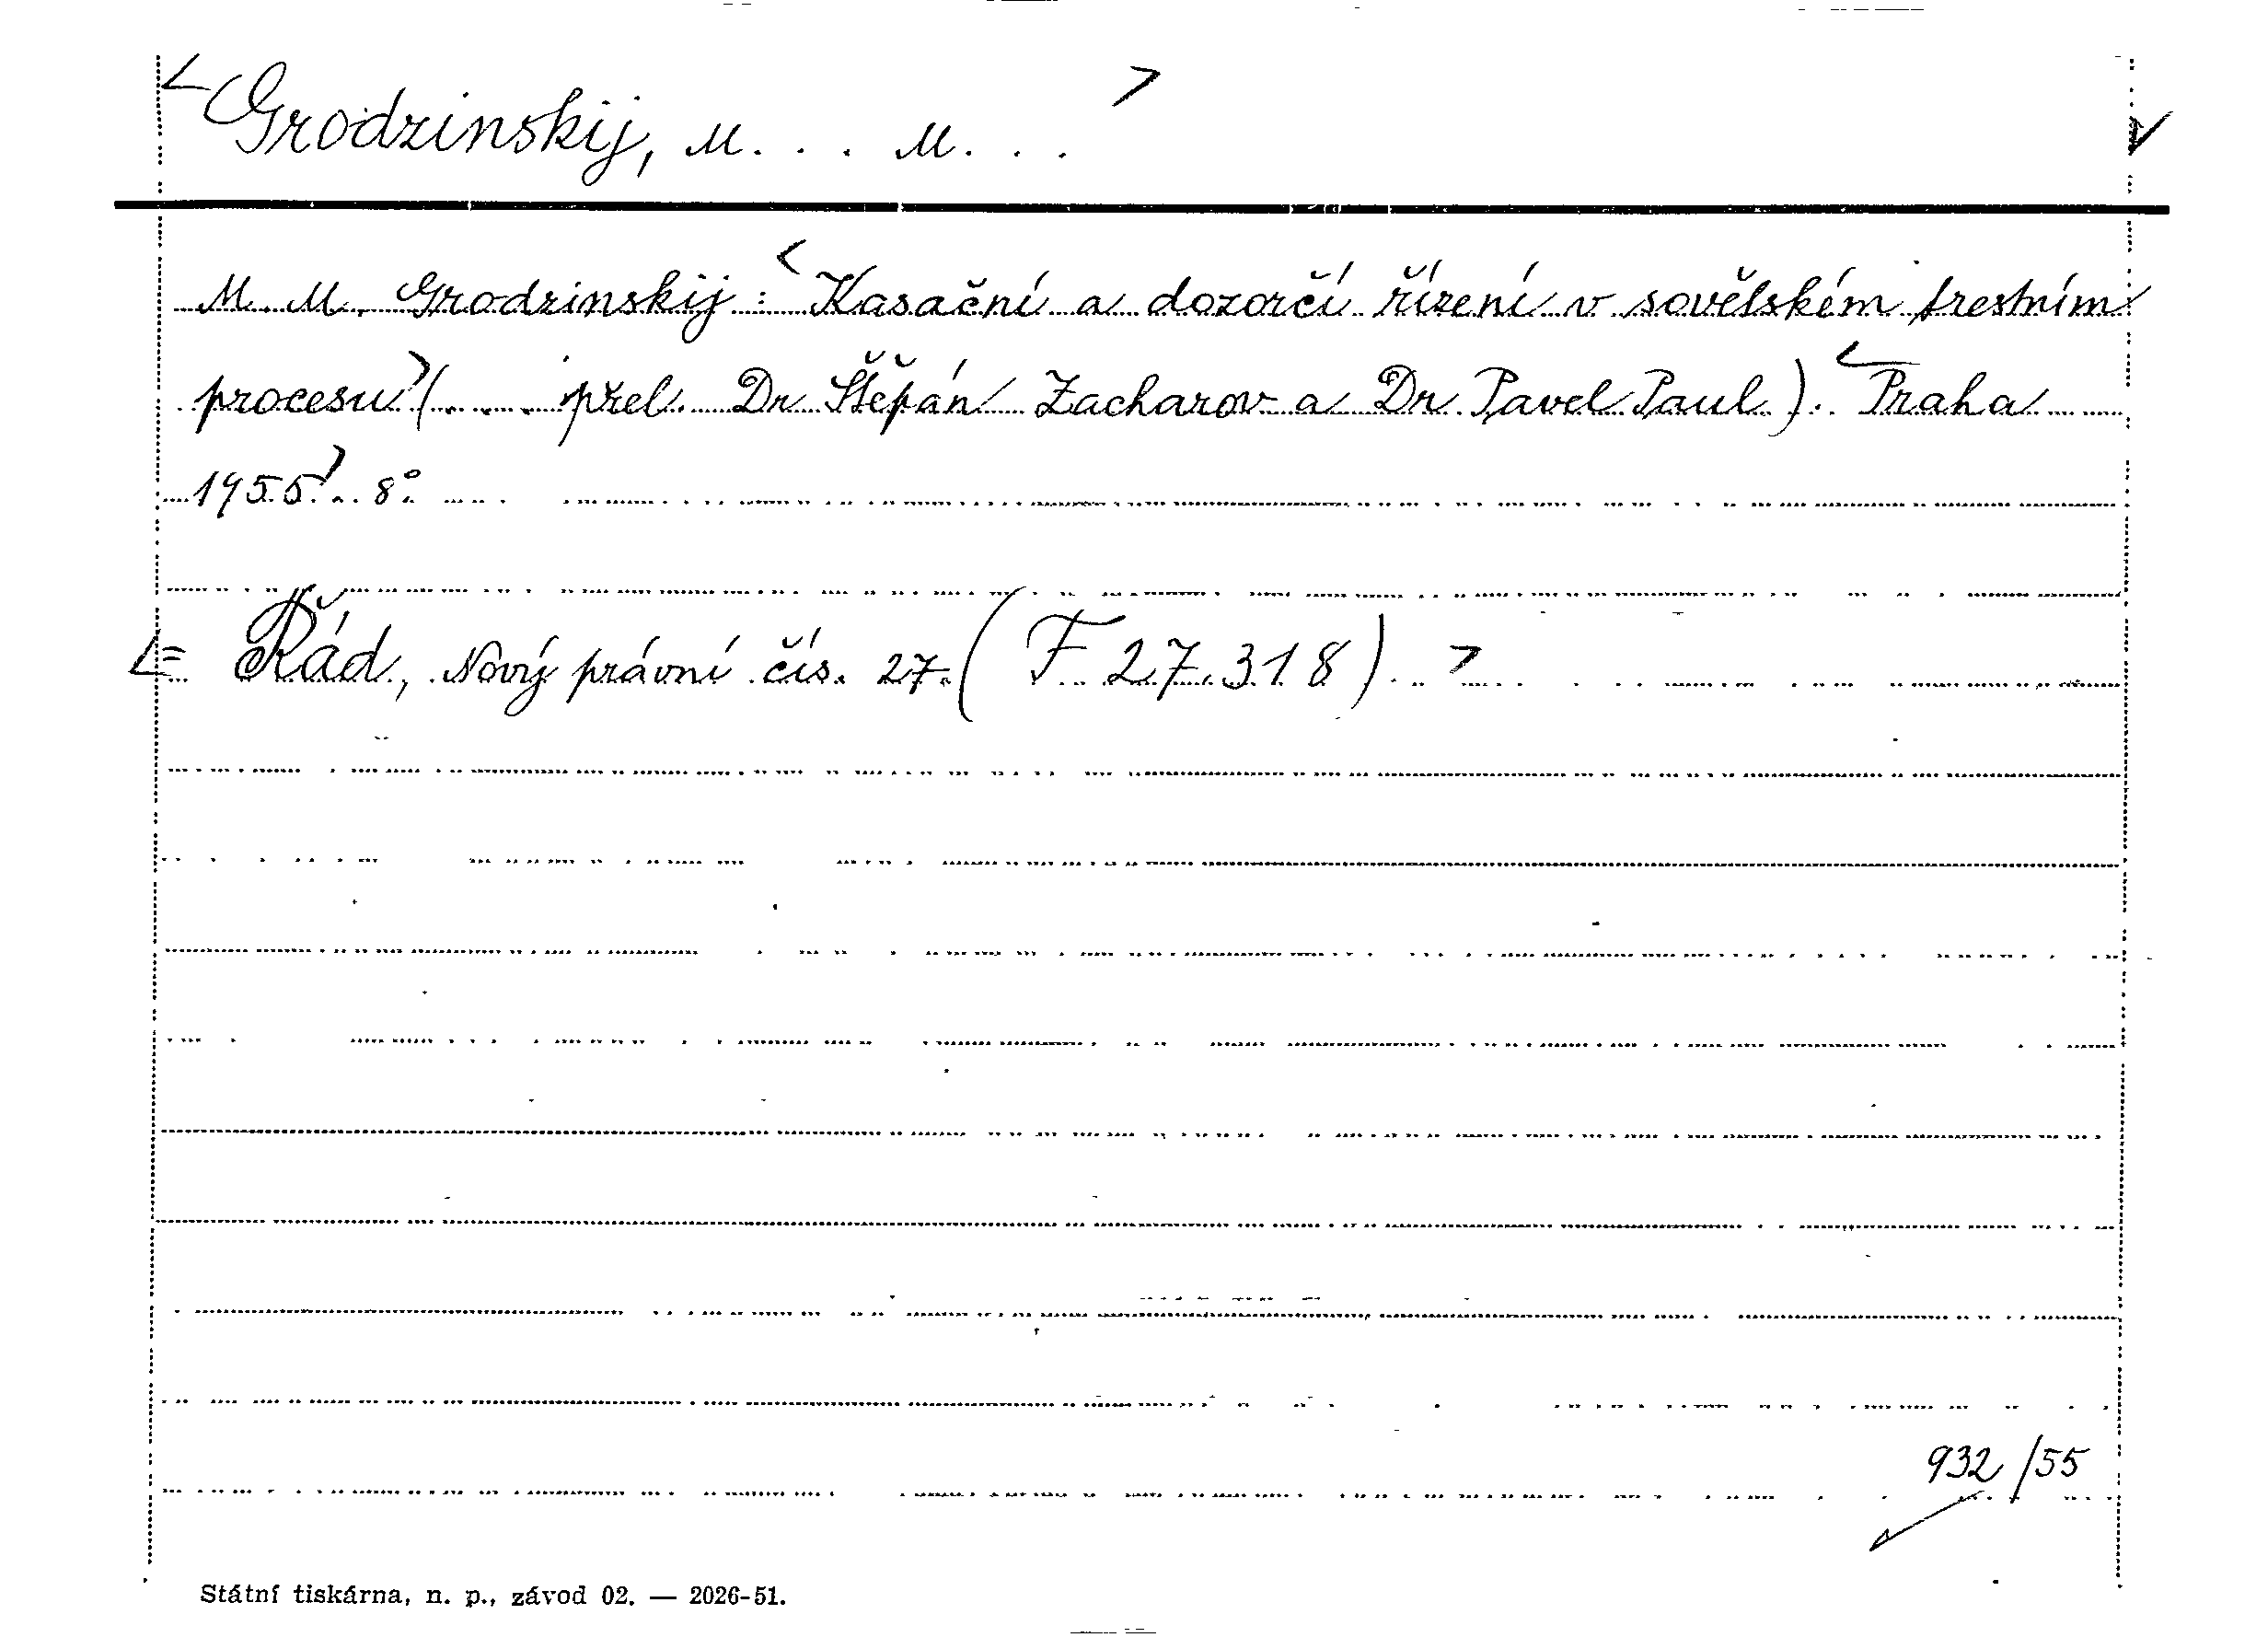 <Grodzinskij, M. . . M. . . >
M. M. Grodzinskij: <Kasační a dozorčí řízení v sovětském trestním
procesu>(. . . přel. Dr Štěpán Zacharov a Dr Pavel Paul). <Praha
1955>. 8°.
<= Řád, Nový právní čís. 27. (F 27.318). >
932/55
Státní tiskárna, n. p., závod 02. — 2026-51.